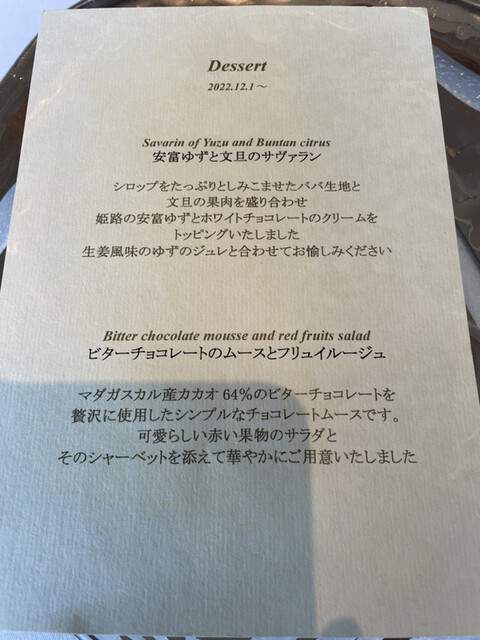 Dessert
2022.12.1～
Savarin of Yuzu and Buntan citrus
安富ゆずと文旦のサヴァラン
シロップをたっぷりとしみこませたババ生地と
文旦の果肉を盛り合わせ
姫路の安富ゆずとホワイトチョコレートのクリームを
トッピングいたしました
生姜風味のゆずのジュレと合わせてお愉しみください
Bitter chocolate mousse and red fruits salad
ビターチョコレートのムースとフリュイルージュ
マダガスカル産カカオ 64%のビターチョコレートを
贅沢に使用したシンプルなチョコレートムースです。
可愛らしい赤い果物のサラダと
そのシャーベットを添えて華やかにご用意いたしました